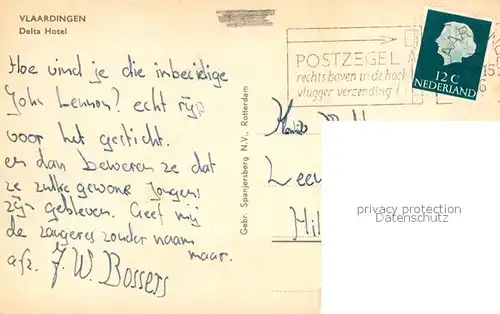 VLAARDINGEN
Delta Hotel
Hoe vind je die inbecidige
John Lennon? echt rijp
voor het gesticht.
en dan beweren ze dat
ze zulke gewone jongens
zijn gebleven. Geef mij
de zangeres zonder naam
maar.
afz. J. W. Bossers
Gebr. Spanjersberg N.V., Rotterdam
POSTZEGEL
rechts boven in de hoek
vlugger verzending!
12 C
NEDERLAND
privacy protection
Datenschutz